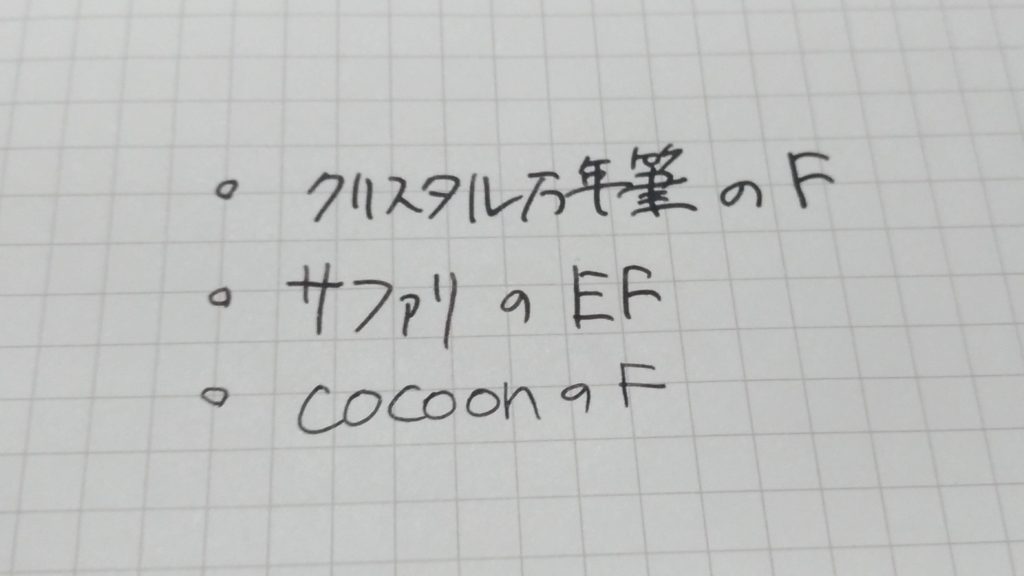 。クリスタル万年筆のF
。サファリのEF
。cocoonのF